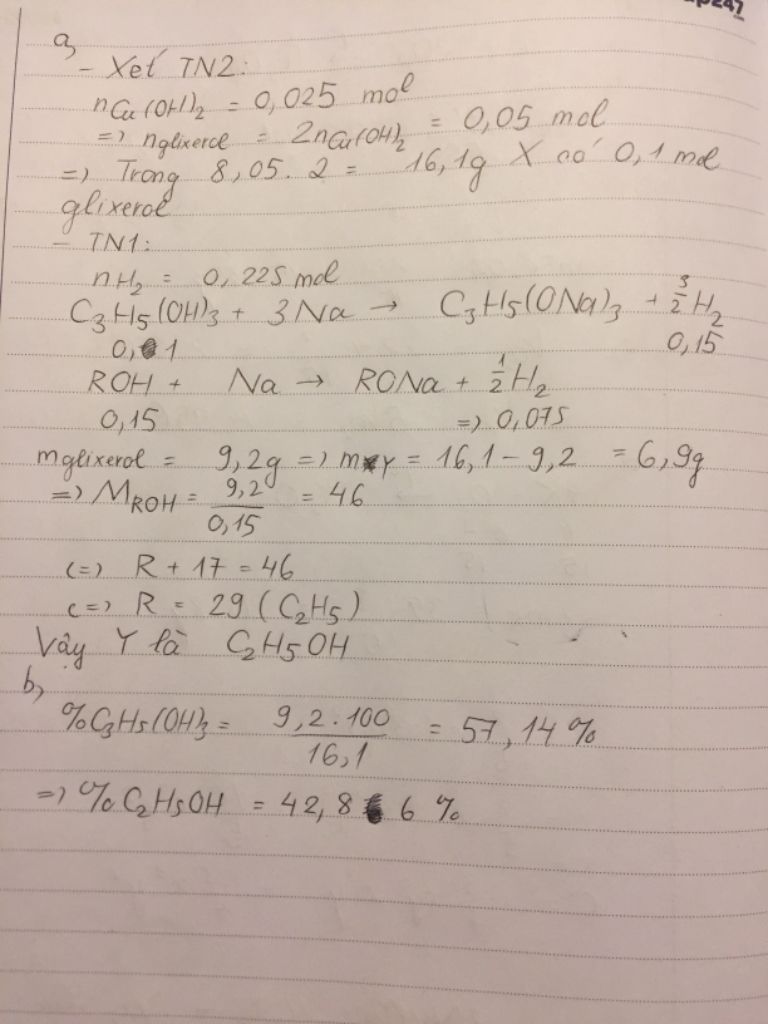 a,
- Xét TN2:
nCu(OH)₂ = 0,025 mol
=> nglixerol = 2nCu(OH)₂ = 0,05 mol
=> Trong 8,05.2 = 16,1g X có 0,1 mol
glixerol
- TN1:
nH₂ = 0,225 mol
C₃H₅(OH)₃ + 3Na → C₃H₅(ONa)₃ + 3/2 H₂
0,1 0,15
ROH + Na → RONa + 1/2 H₂
0,15 => 0,075
mglixerol = 9,2g => mY = 16,1 - 9,2 = 6,9g
=> MROH = 9,2/0,15 = 46
(=) R + 17 = 46
(=) R = 29 (C₂H₅)
Vậy Y là C₂H₅OH
b,
%C₃H₅(OH)₃ = 9,2.100/16,1 = 57,14%
=> %C₂H₅OH = 42,86%